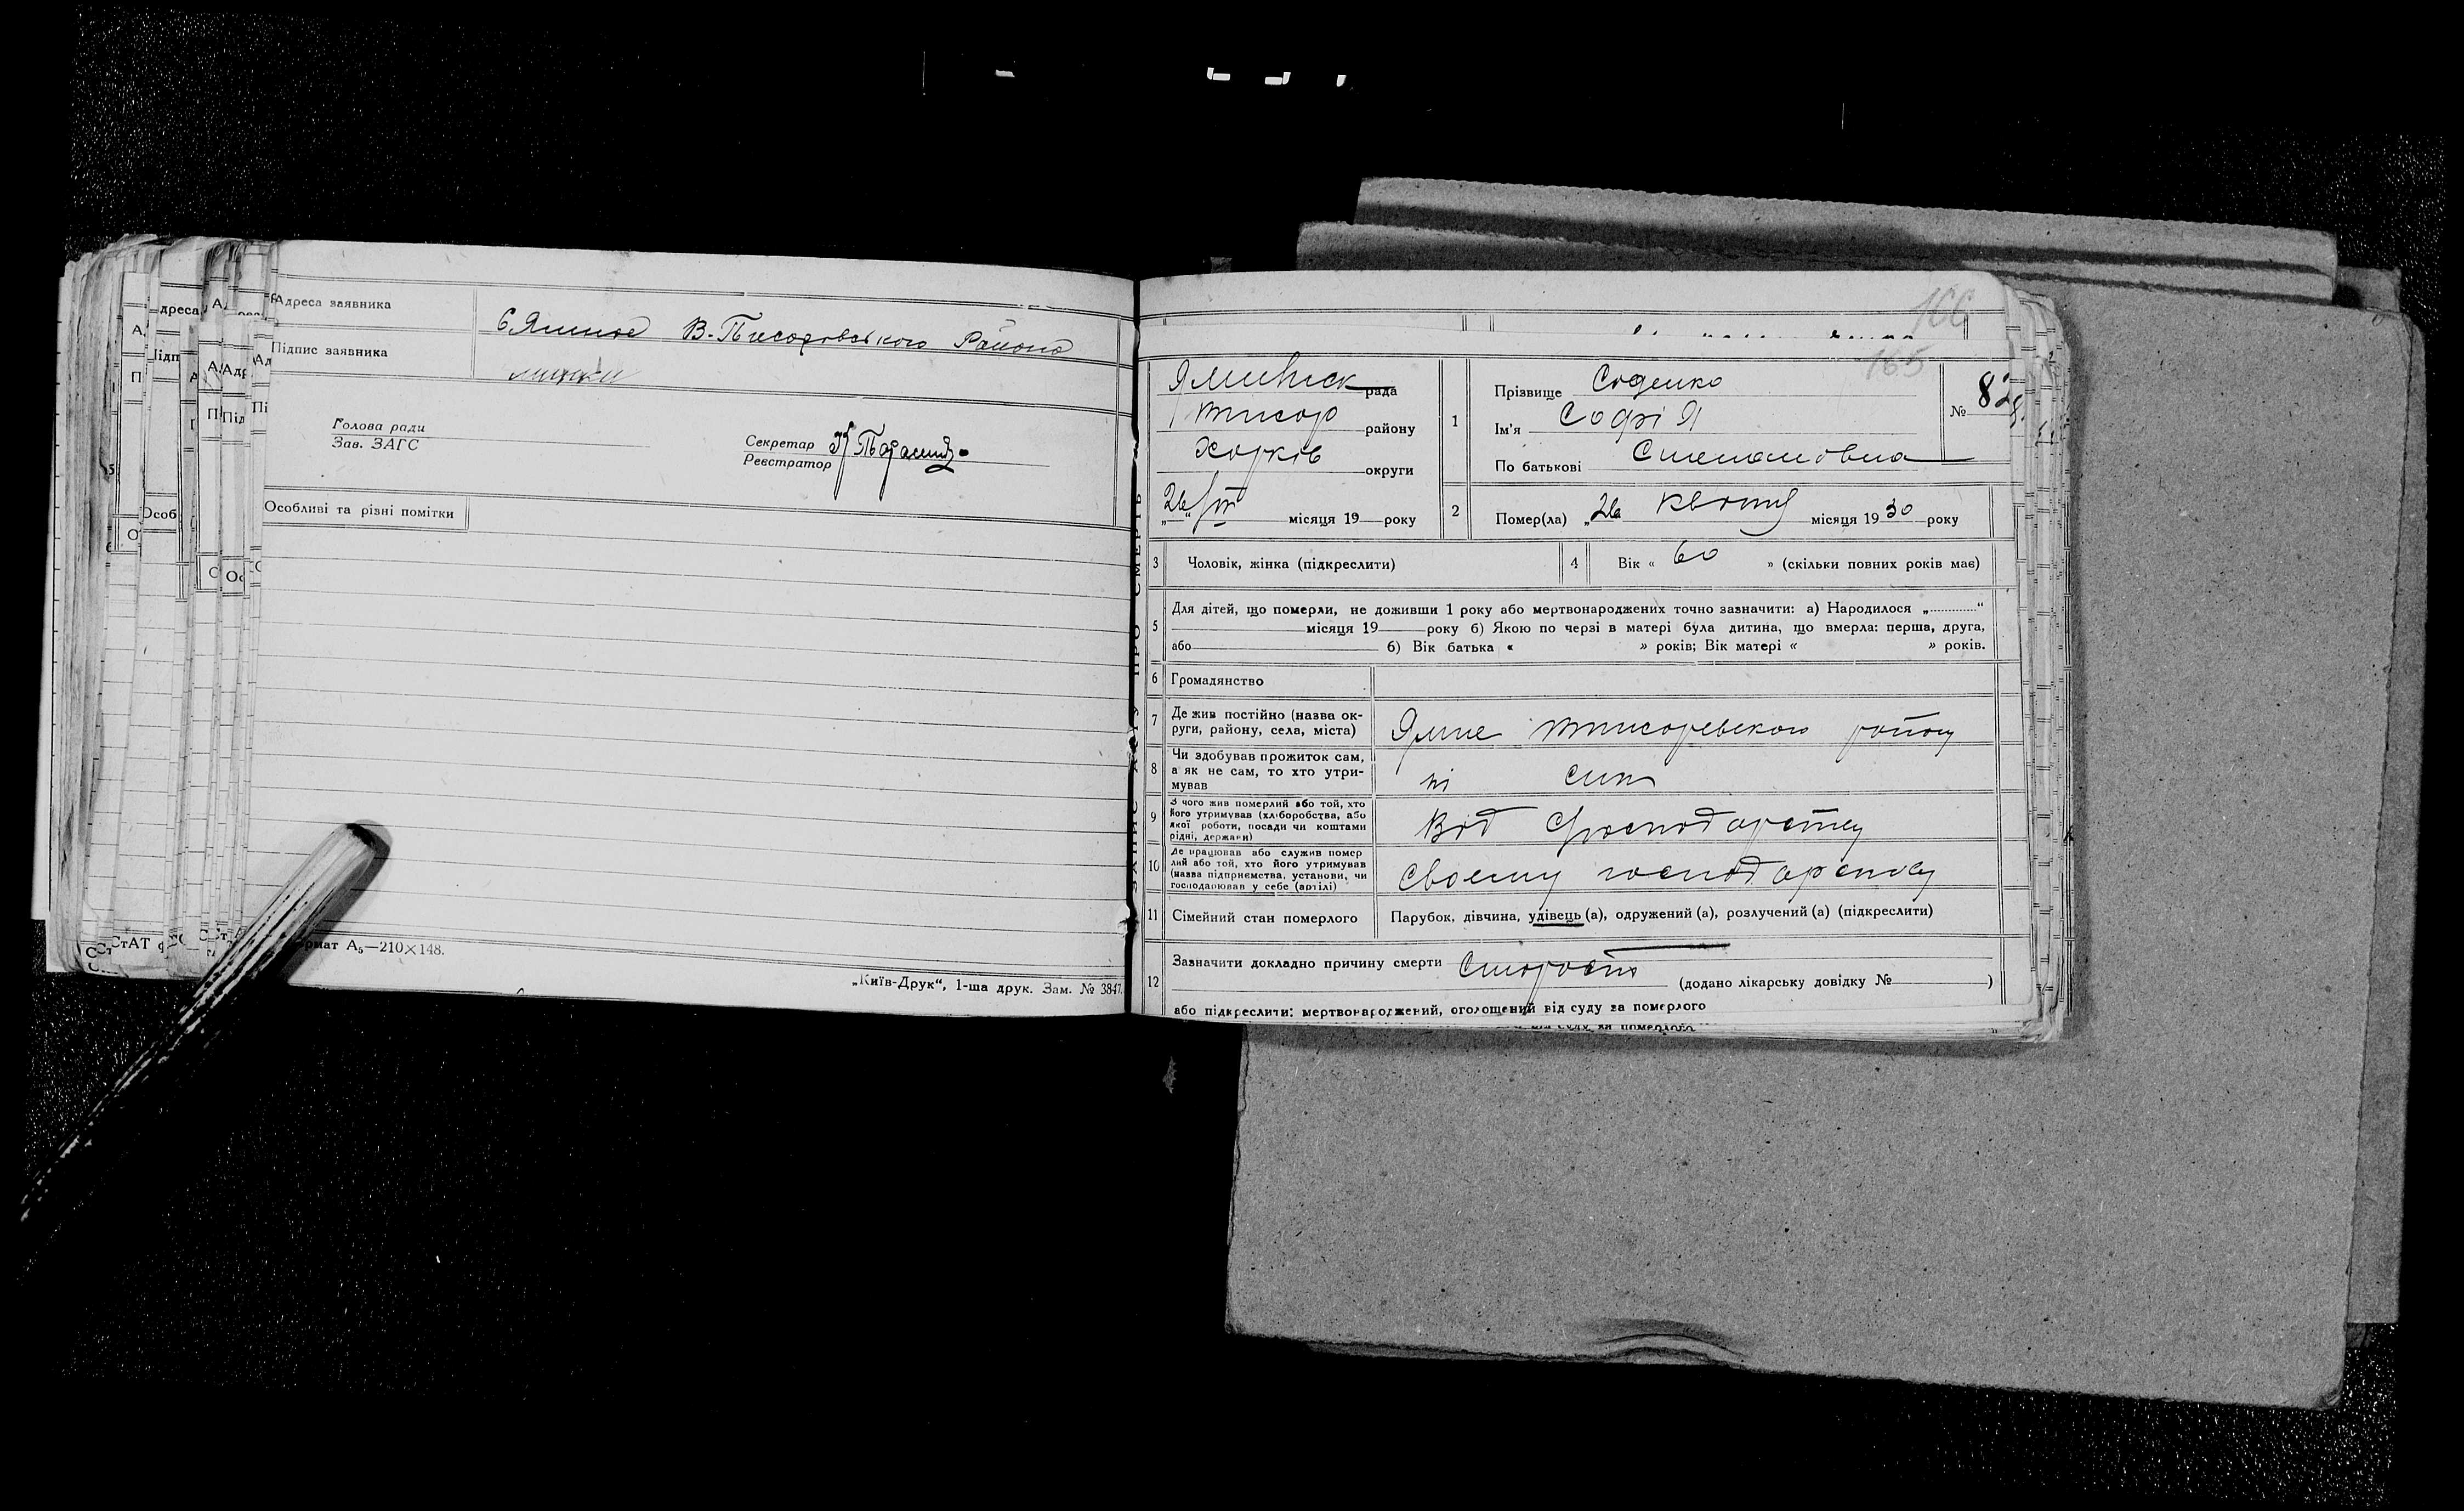 Адреса заявника
с Ямное В-Писаревського Района
Підпис заявника
Голова ради
Зав. ЗАГС
Секретар
Реєстратор
Особливі та різні помітки
рмат А5—210×148.
„Київ-Друк“, 1-ша друк. Зам. № 3847.
166
165
рада
району
Харків
округи
26/IV
„ “ місяця 19 року
1
Прізвище
Ім'я Софія
По батькові Степановна
№ 82
2
Помер(ла) „26 квітня місяця 1930 року
3 Чоловік, жінка (підкреслити)
4 Вік « 60 » (скільки повних років має)
5
Для дітей, що померли, не доживши 1 року або мертвонароджених точно зазначити: а) Народилося „ “
місяця 19 року б) Якою по черзі в матері була дитина, що вмерла: перша, друга,
або б) Вік батька « » років; Вік матері « » років.
6 Громадянство
7 Де жив постійно (назва ок-
руги, району, села, міста)
Ямне Писаревского району
8 Чи здобував прожиток сам,
а як не сам, то хто утри-
мував
ні син
9 З чого жив померлий або той, хто
його утримував (хліборобства, або
якої роботи, посади чи коштами
рідні, держави)
Від Господарству
10 Де працював або служив помер
лий або той, хто його утримував
(назва підприємства, установи, чи
господарював у себе (артілі)
Своєму господарству
11 Сімейний стан померлого
Парубок, дівчина, удівець (а), одружений (а), розлучений (а) (підкреслити)
12 Зазначити докладно причину смерти Старость
(додано лікарську довідку № )
або підкреслити: мертвонароджений, оголошений від суду за померлого
ЗАПИС АКТУ ПРО СМЕРТЬ